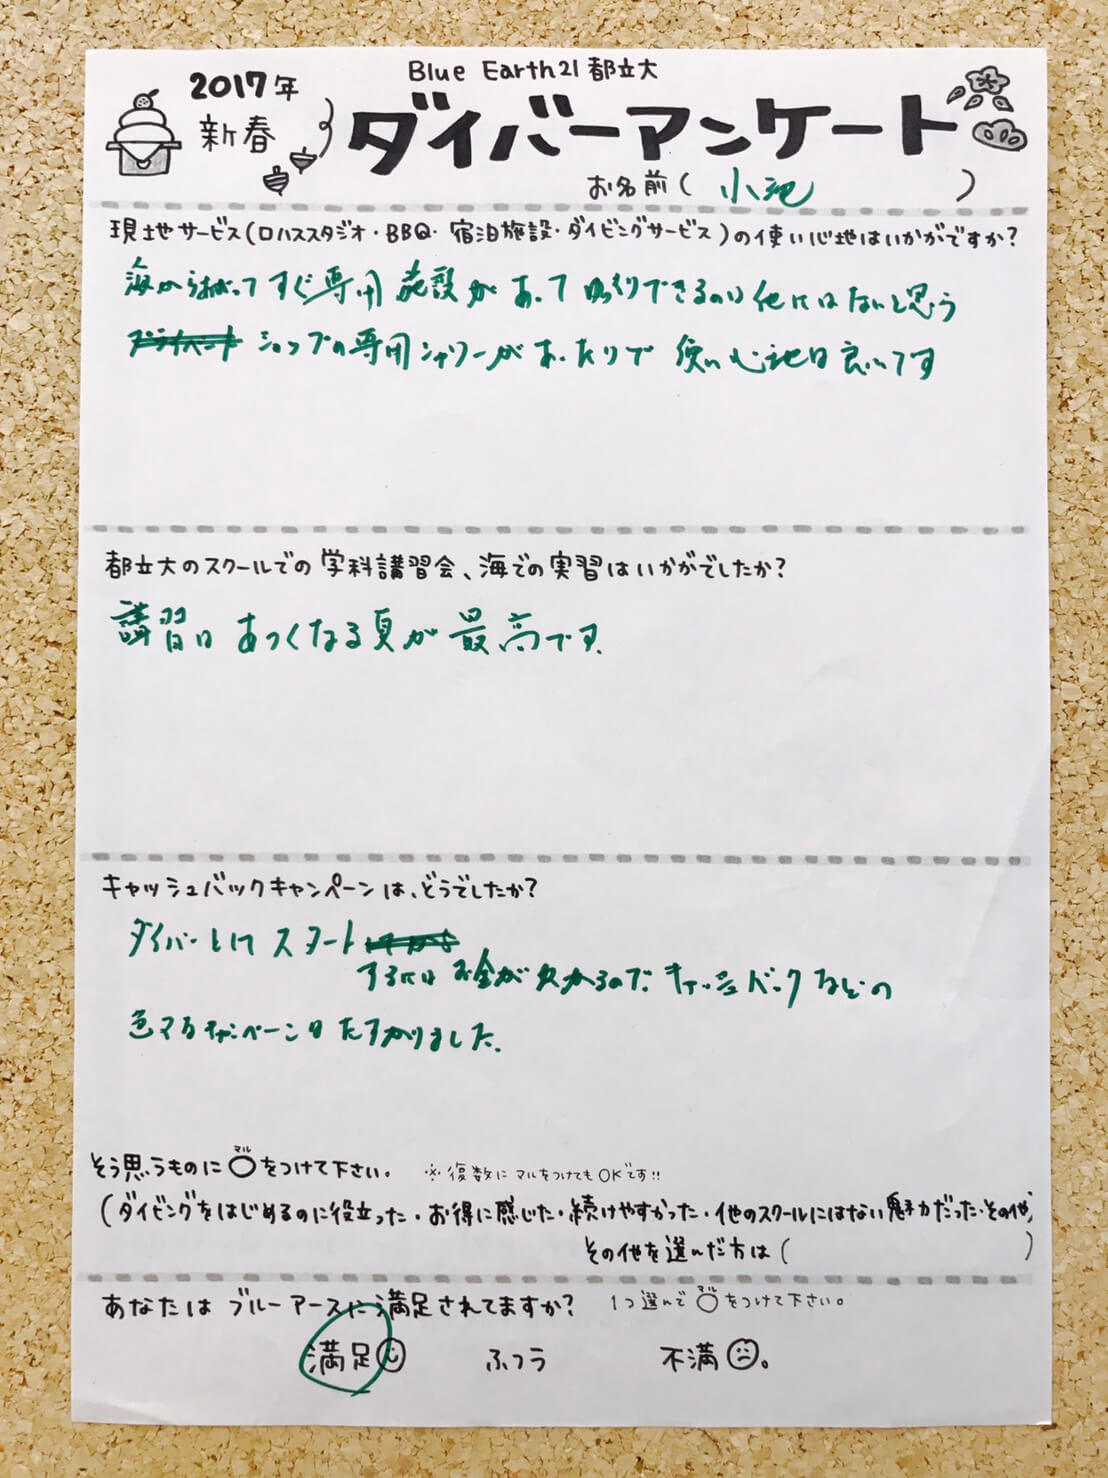 Blue Earth21 都立大
2017年
新春
ダイバーアンケート
お名前( 小池 )
現地サービス(ロハススタジオ・BBQ・宿泊施設・ダイビングサービス)の使い心地はいかがですか?
海から揚がってすぐ専用施設があってゆっくりできるのは他にはないと思う
ショップの専用シャワーがあったりで使い心地は良いです
都立大のスクールでの学科講習会、海での実習はいかがでしたか?
講習はあつくなる夏が最高です。
キャッシュバックキャンペーンは、どうでしたか?
ダイバーとしてスタート
するにはお金がかかるので、キャッシュバックなどの
色々なキャンペーンはたすかりました。
そう思うものに○をつけて下さい。 ※復数にマルをつけてもOKです!!
マル
(ダイビングをはじめるのに役立った・お得に感じた・続けやすかった・他のスクールにはない魅力だった・その他)
その他を選んだ方は( )
あなたはブルーアースに満足されてますか? 1つ選んで○をつけて下さい。
マル
満足 ふつう 不満。